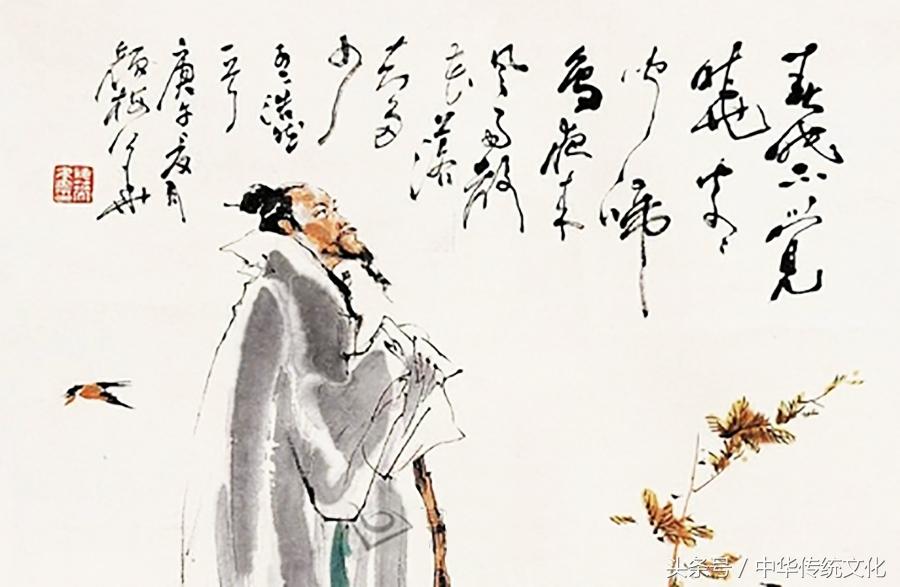 春眠不觉
晓处々
闻啼
鸟夜来
风雨声
花落
知多
少
孟浩然
一首
庚午夏月
颜梅华
头条号 / 中华传统文化